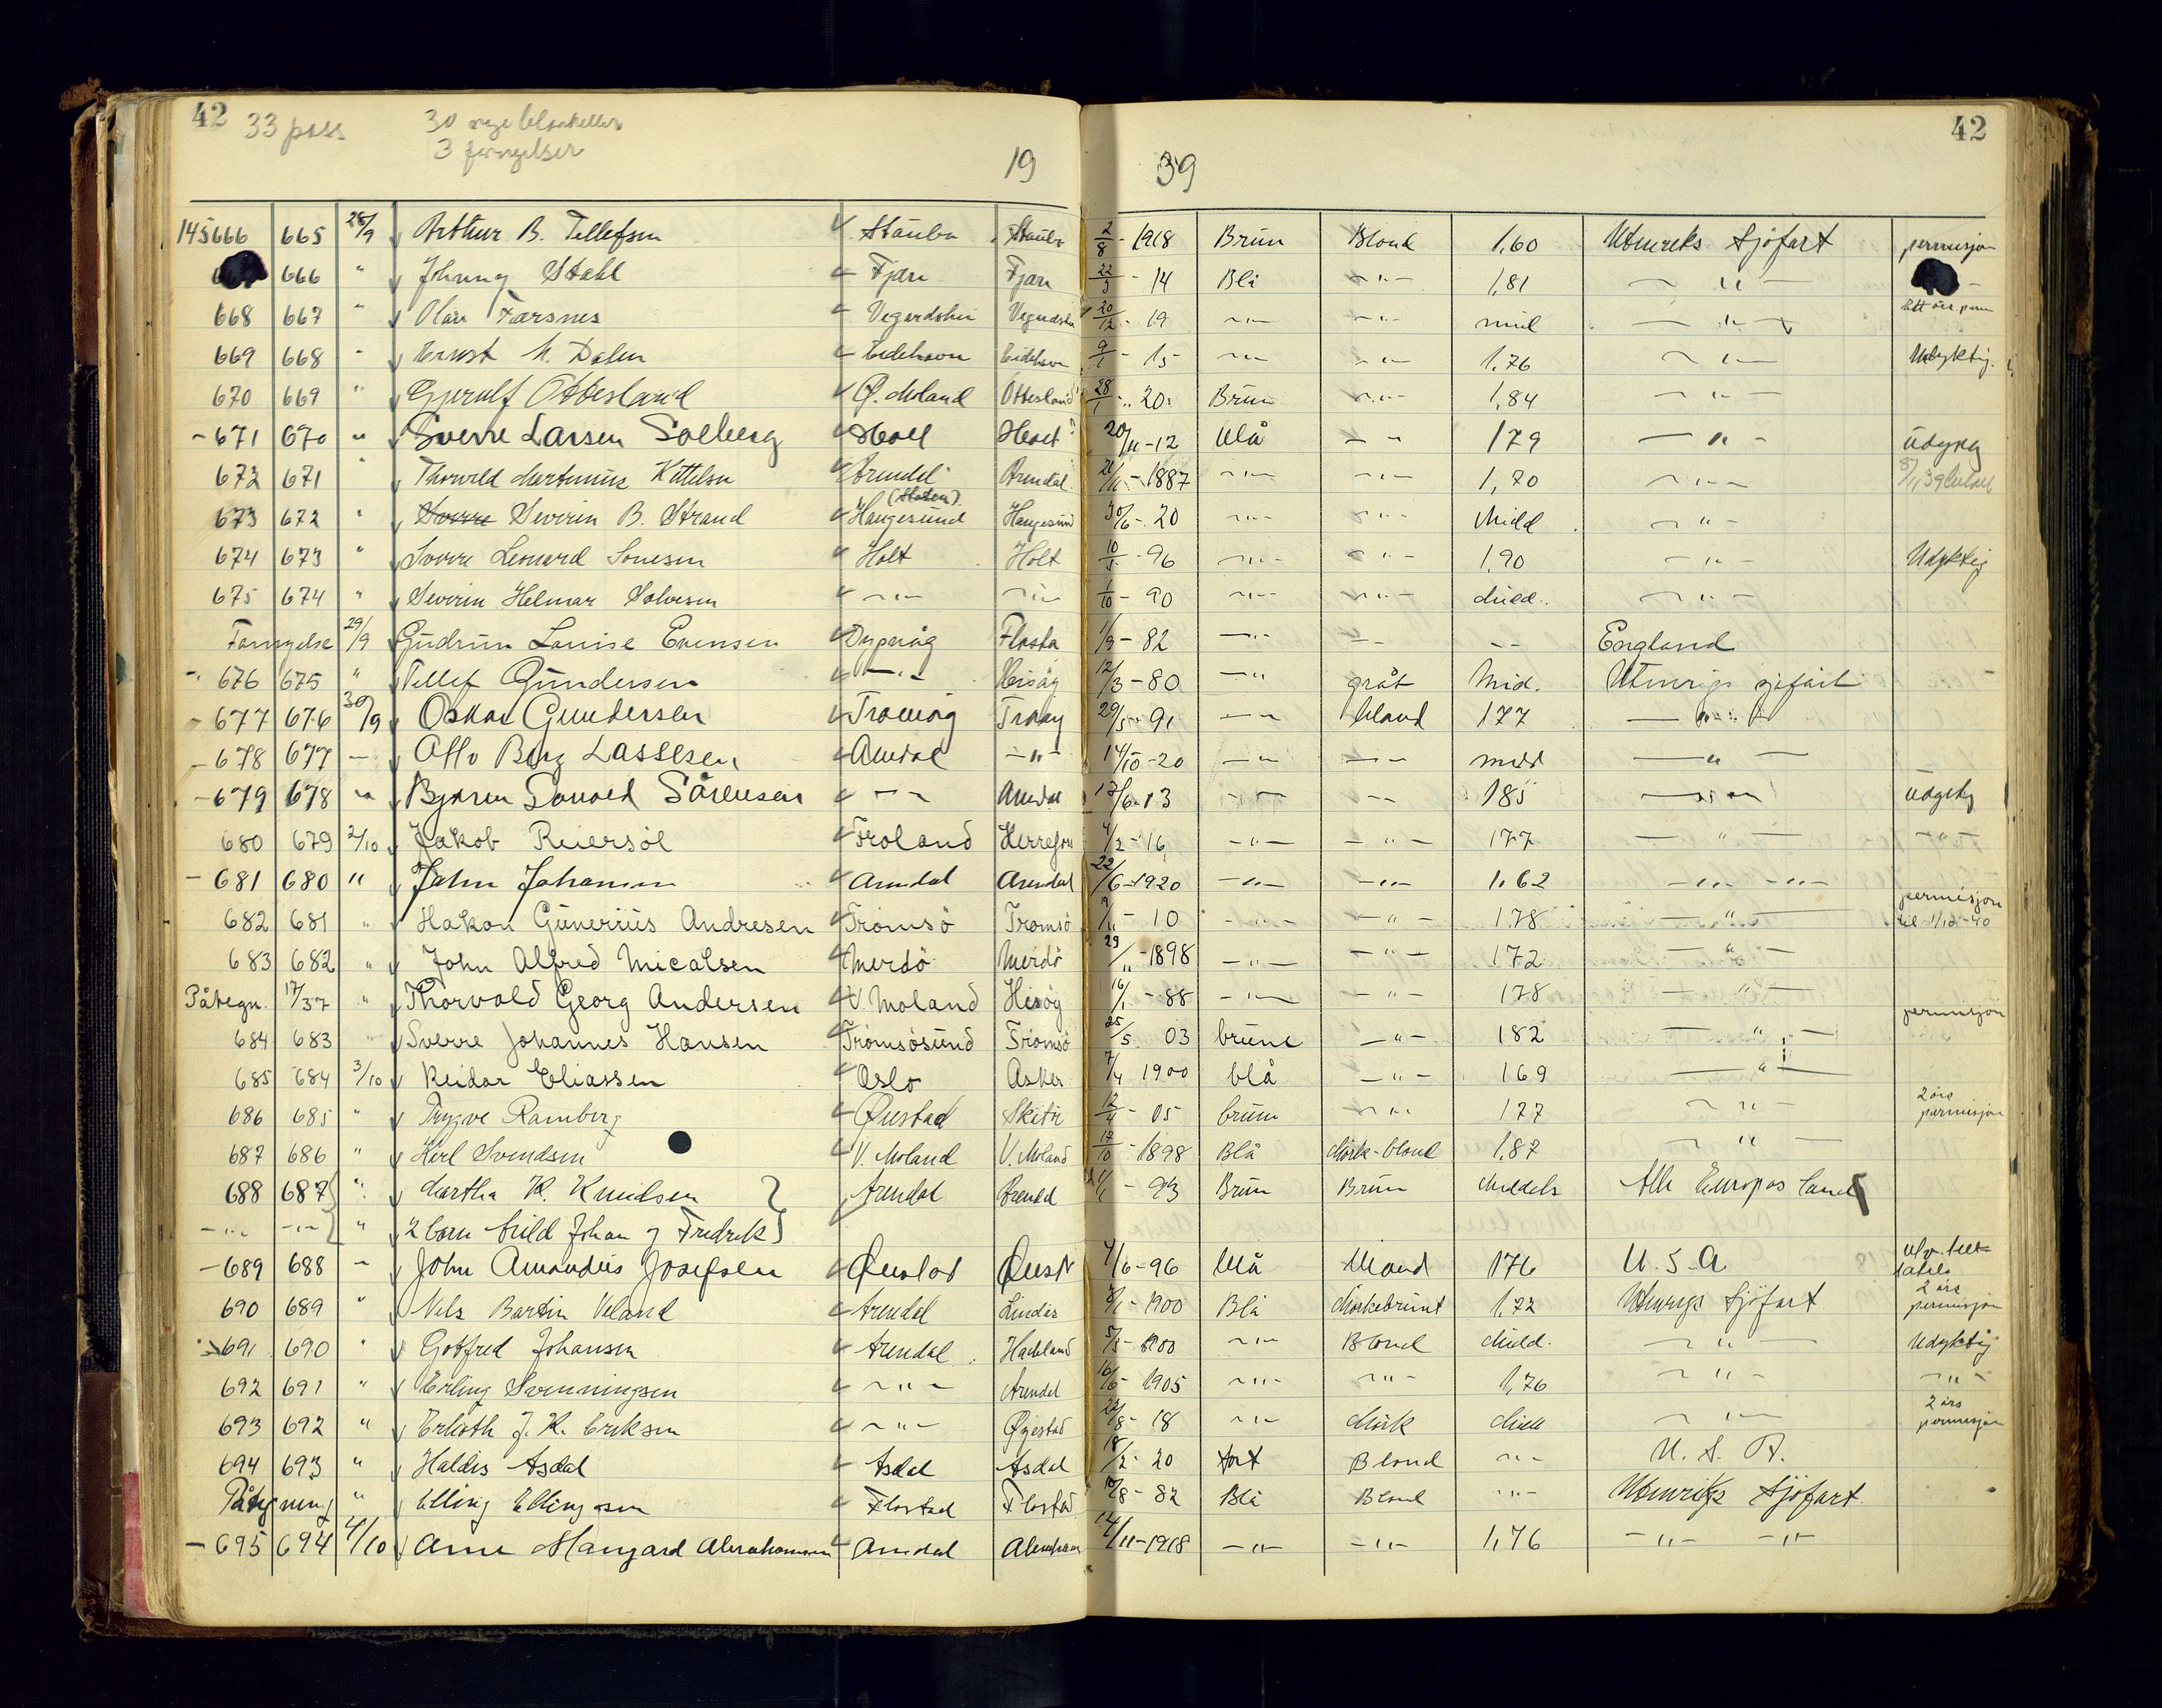 42 33 pass 30 nye blanketter 42
3 fornyelser
19 39
145666 665 28/9 Arthur B. Tellefsen Staubø Staubø 2/8 - 1918 Brun Blond 1,60 Utenriks Sjöfart permisjon
666 " Johnny Stahl Fjære Fjære 22/3 - 14 Blå -"- 1,81 -"-
668 667 " Olav Farsnes Vegårdshei Vegårdshei 20/12 - 19 -"- -"- mid -"- Ett års perm
669 668 " Ernst M. Dalen Eidehavn Eidehavn 9/1 - 15 -"- -"- 1,76 -"- Udyktig.
670 669 " Gjerulf Ottesland Ø. Moland Ottesland 28/1 - 20 Brun -"- 1,84 -"-
-671 670 " Sverre Larsen Solberg Holt Holt 20/11-12 blå -"- 179 -"- Udyktig
672 671 " Thorvald Martinius Kittelsen Arendal Arendal 21/11 - 1887 -"- -"- 1,70 -"-
673 672 " Sverre Severin B. Strand Haugesund (Staten). Haugesund 30/6 - 20 -"- -"- Midd -"-
674 673 " Sverre Leonard Jonesen Holt Holt 10/5 - 96 -"- -"- 1,90 -"- Udyktig
675 674 " Severin Helmar Salvesen -"- -"- 1/10 - 90 -"- -"- Midd. -"-
Fornyelse 29/9 Gudrun Louise Evensen Dypvåg Flosta 1/9 - 82 -"- -"- -- England
- 676 675 " Tellef Gundersen -"- Hisøy 12/3 - 80 -"- grått Mid. Utenriks sjøfart
- 677 676 30/9 Oskar Gundersen Tromøy Tromøy 29/5 - 91 -"- blond 177 -"-
-678 677 - Otto Berg Lassesen Arendal -"- 14/10-20 -"- -"- midd -"-
-679 678 " Bjarne Tonald Sörensen -"- Arendal 17/6-13 -"- -- 185 -"- Udyktig
680 679 2/10 Jakob Reiersøl Froland Herrefoss 4/2 - 16 -"- -"- 177 -"- -"-
- 681 680 " John Johansen Arendal Arendal 22/6-1920 -"- -"- 1.62 -"- -"-
682 681 " Hakon Gunerius Andresen Tromsö Tromsö 9/11 - 10 -"- -"- 178 -"- permisjon til 1/12-40
683 682 " John Alfred Micalsen Merdö Merdö 29/11-1898 -"- -"- 172 -"-
Påtegn. 17/37 " Thorvald Georg Andersen V. Moland Hisøy 16/1 - 88 -"- -"- 178 -"-
684 683 " Sverre Johannes Hansen Tromsösund Tromsö 25/5 03 brune -"- 182 -"- permisjon
685 684 3/10 Reidar Eliassen Oslo Asker 7/4 1900 blå -"- 169 -"-
686 685 " Trygve Ramberg Øiestad 12/4 - 05 brun -"- 177 -"- 2 års permisjon
687 686 " Karl Svendsen V. Moland V. Moland 17/10 - 1898 Blå Mörk-blond 1,87 -"-
688 687 " Martha K. Knudsen Arendal Arendal 11/1 - 93 Brun Brun Middels Alle Europas land
-"- -"- " 2 barn Arild Johan og Fredrik
-689 688 - John Amandus Josefsen Øiestad Øiest 4/6-96 blå blond 176 U.S.A.
690 689 " Nils Bartin Veland Arendal Lindås 1900 Blå Mörkebrunt 1,72 Utenriks Sjöfart 2 års permisjon
691 690 " Gotfred Johansen Arendal 5/5 - 1900 -"- Blond Midd. -"- Udyktig
692 691 " Erling Svenningsen -"- Arendal 16/6 - 1905 -"- -"- 1,76 -"- -"-
693 692 " J. K. Eriksen -"- Øyestad 22/8 - 18 -"- Mörk Midd -"- 2 års permisjon
694 693 " Haldis Asdal Asdal Asdal 18/2 - 20 Blond -"- U. S. A.
Påtegning " Elling Ellingsen Flostad Flostad 10/8 - 82 Blå Blond -"- Utenriks Sjöfart
-695 694 4/10 Arne Abrahamsen Arendal 14/11-1918 -"- -"- 1,76 -"- -"-